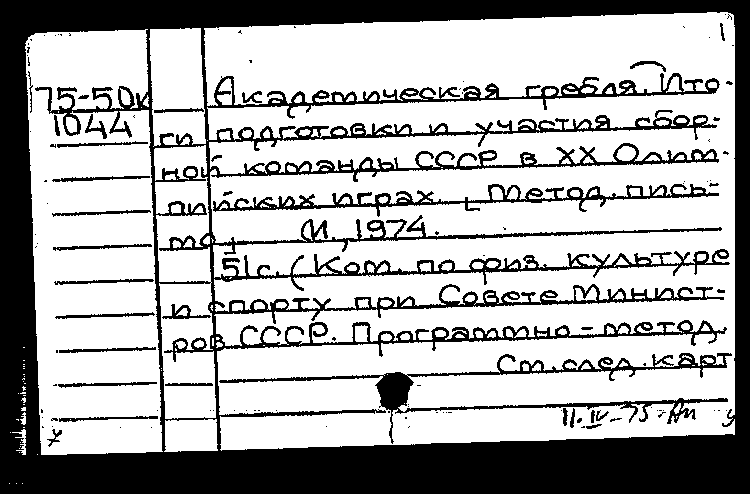 1
75-50к Академическая гребля. Ито-
1044 ги подготовки и участия сбор-
ной команды СССР в XX Олим-
пийских играх. [Метод. пись-
мо] М., 1974.
51с. (Ком. по физ. культуре
и спорту при Совете Минист-
ров СССР. Программно-метод.
См.след.карт
11.IV-75-Ап у
х